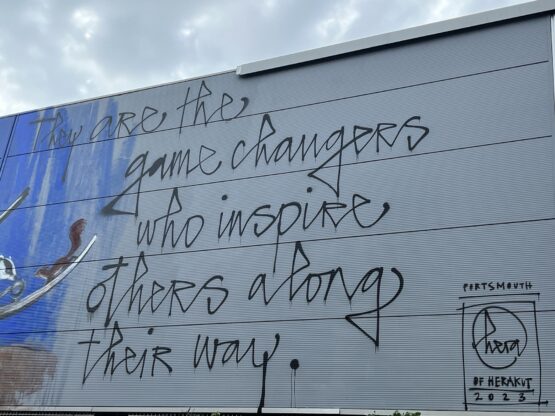 They are the
game changers
who inspire
others along
their way.
PORTSMOUTH
hera
OF HERAKUT
2023